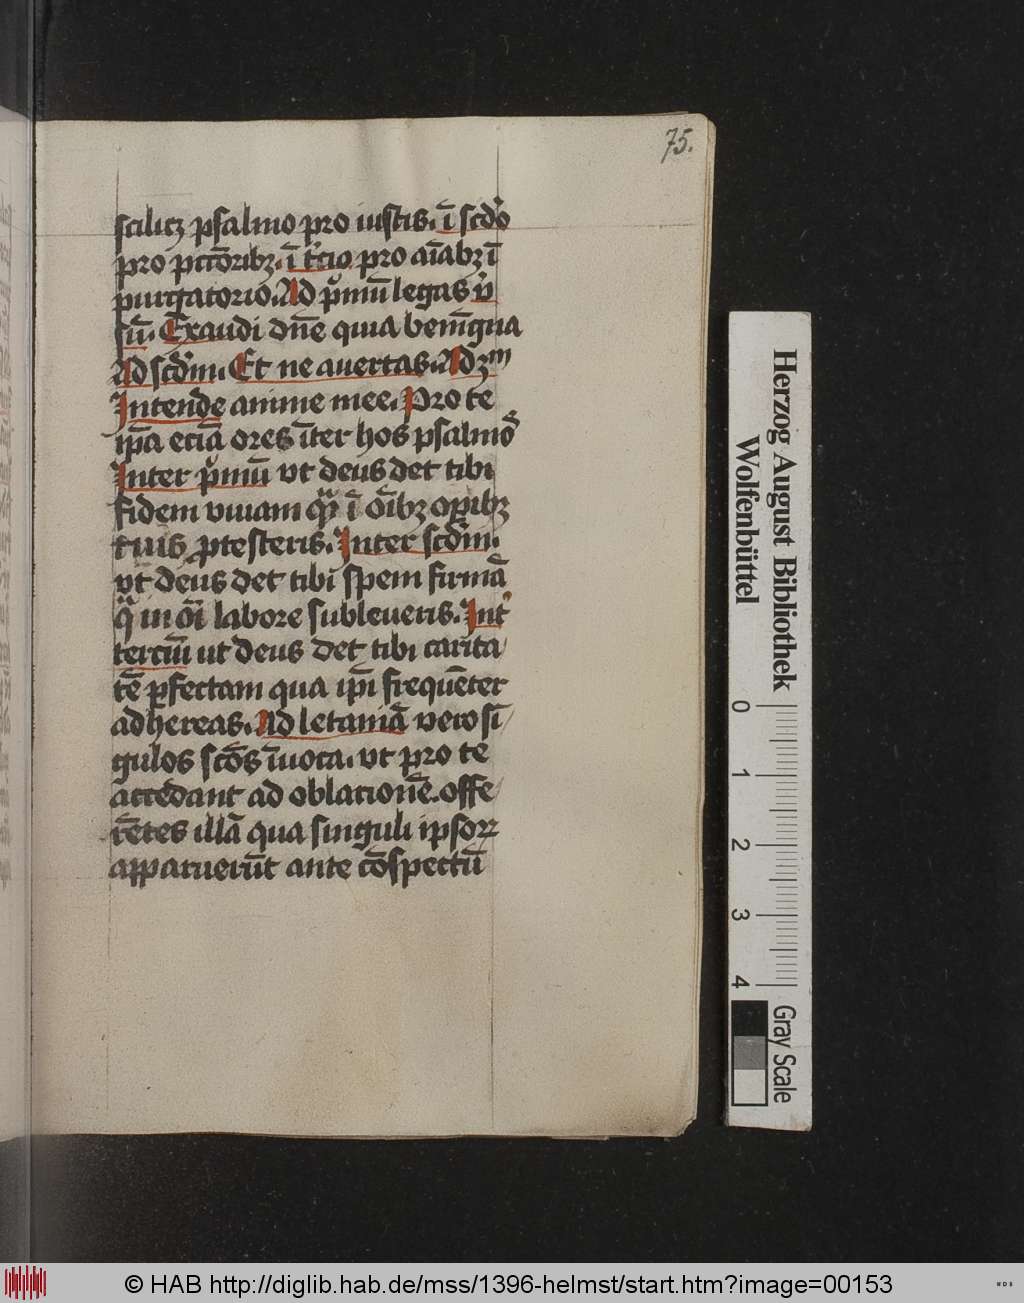 75.
scilicꝫ psalmo pro iustis. ī scd̓o
pro pccōribꝫ. ī t̓cio pro aīabꝫ ī
purgatorio. Ad pͥmū legas v̓
sū. Exaudi dn̄e quia benīgna
Ad scd̓m. Et ne auertas. Ad ꝫᵐ
Intende anime mee. Pro te
ip̄a eciā ores īter hos psalmo᷒
Inter pͥmū vt deus det tibi
fidem viuam qͣꝫ ī oī̄bꝫ oꝑibꝫ
tuis ꝓtesteris. Inter scd̓m.
vt deus det tibi spem firmā
qͣ in oī labore subleueris. Int̓
terciū ut deus det tibi carita/
tē ꝑfectam qua ip̄i frequēter
adhereas. Ad letaniā vero sī/
gulos scōs īuoca. vt pro te
accedant ad oblacionē. offe/
rētes illā qua singuli ipsoꝝ
apparuerūt ante cōspectū
Herzog August Bibliothek
Wolfenbüttel
0 1 2 3 4
Gray Scale
© HAB http://diglib.hab.de/mss/1396-helmst/start.htm?image=00153
WDB